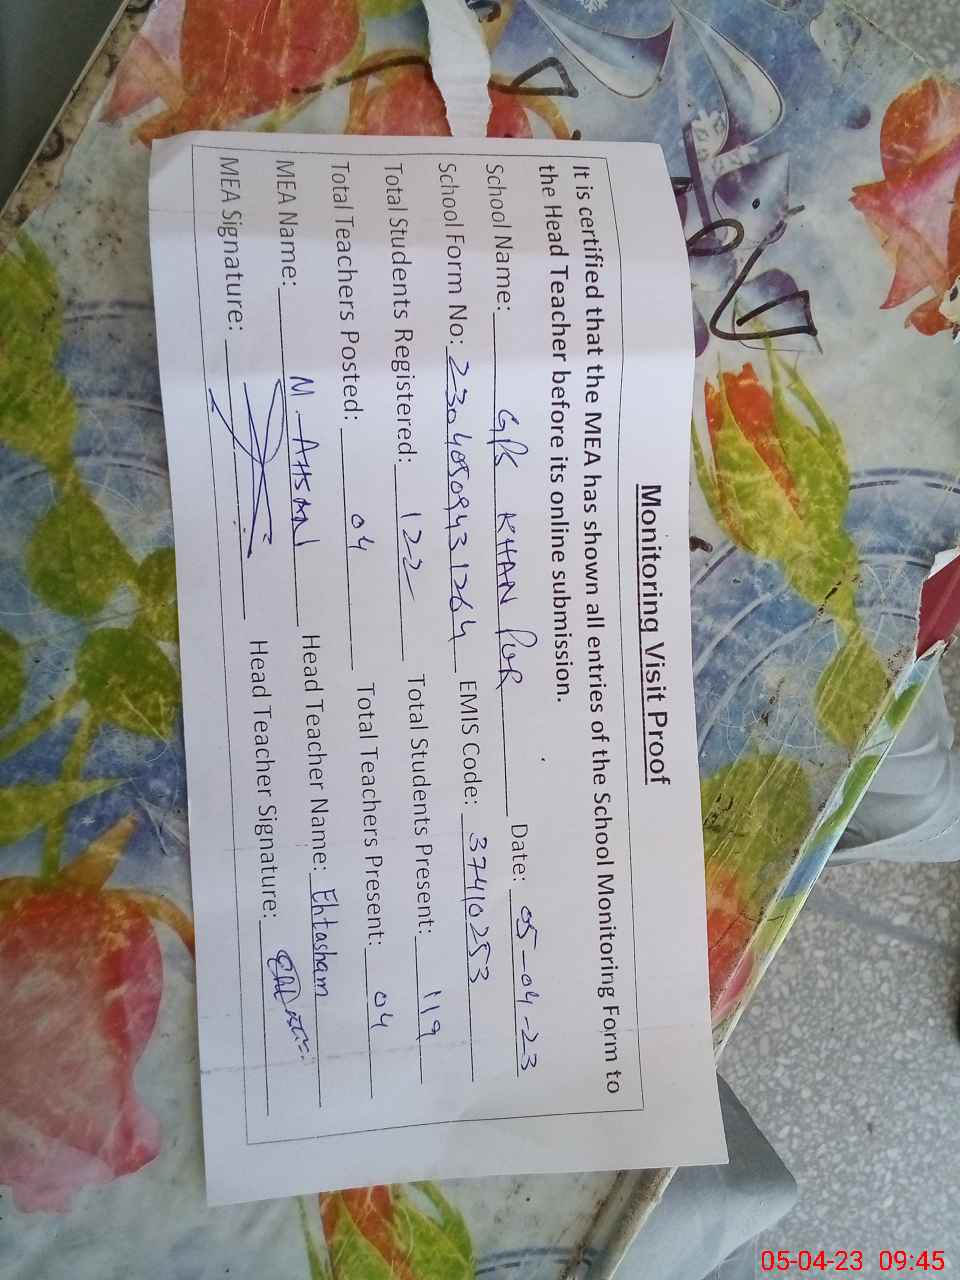 Monitoring Visit Proof
It is certified that the MEA has shown all entries of the School Monitoring Form to
the Head Teacher before its online submission.
School Name: GPS KHAN PUR Date: 05-04-23
School Form No: 23040509431264 EMIS Code: 37410253
Total Students Registered: 122 Total Students Present: 119
Total Teachers Posted: 04 Total Teachers Present: 04
MEA Name: M. AHSAN Head Teacher Name: Ehtasham
MEA Signature: Head Teacher Signature:
05-04-23 09:45